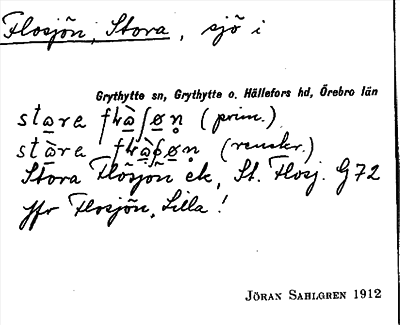 Flosjön, Stora, sjö i
Grythytte sn, Grythytte o. Hällefors hd, Örebro län
(prim.)
(renskr.)
Stora Flosjön ek, St. Flosj. G72
Jfr Flosjön, Lilla!
JÖRAN SAHLGREN 1912